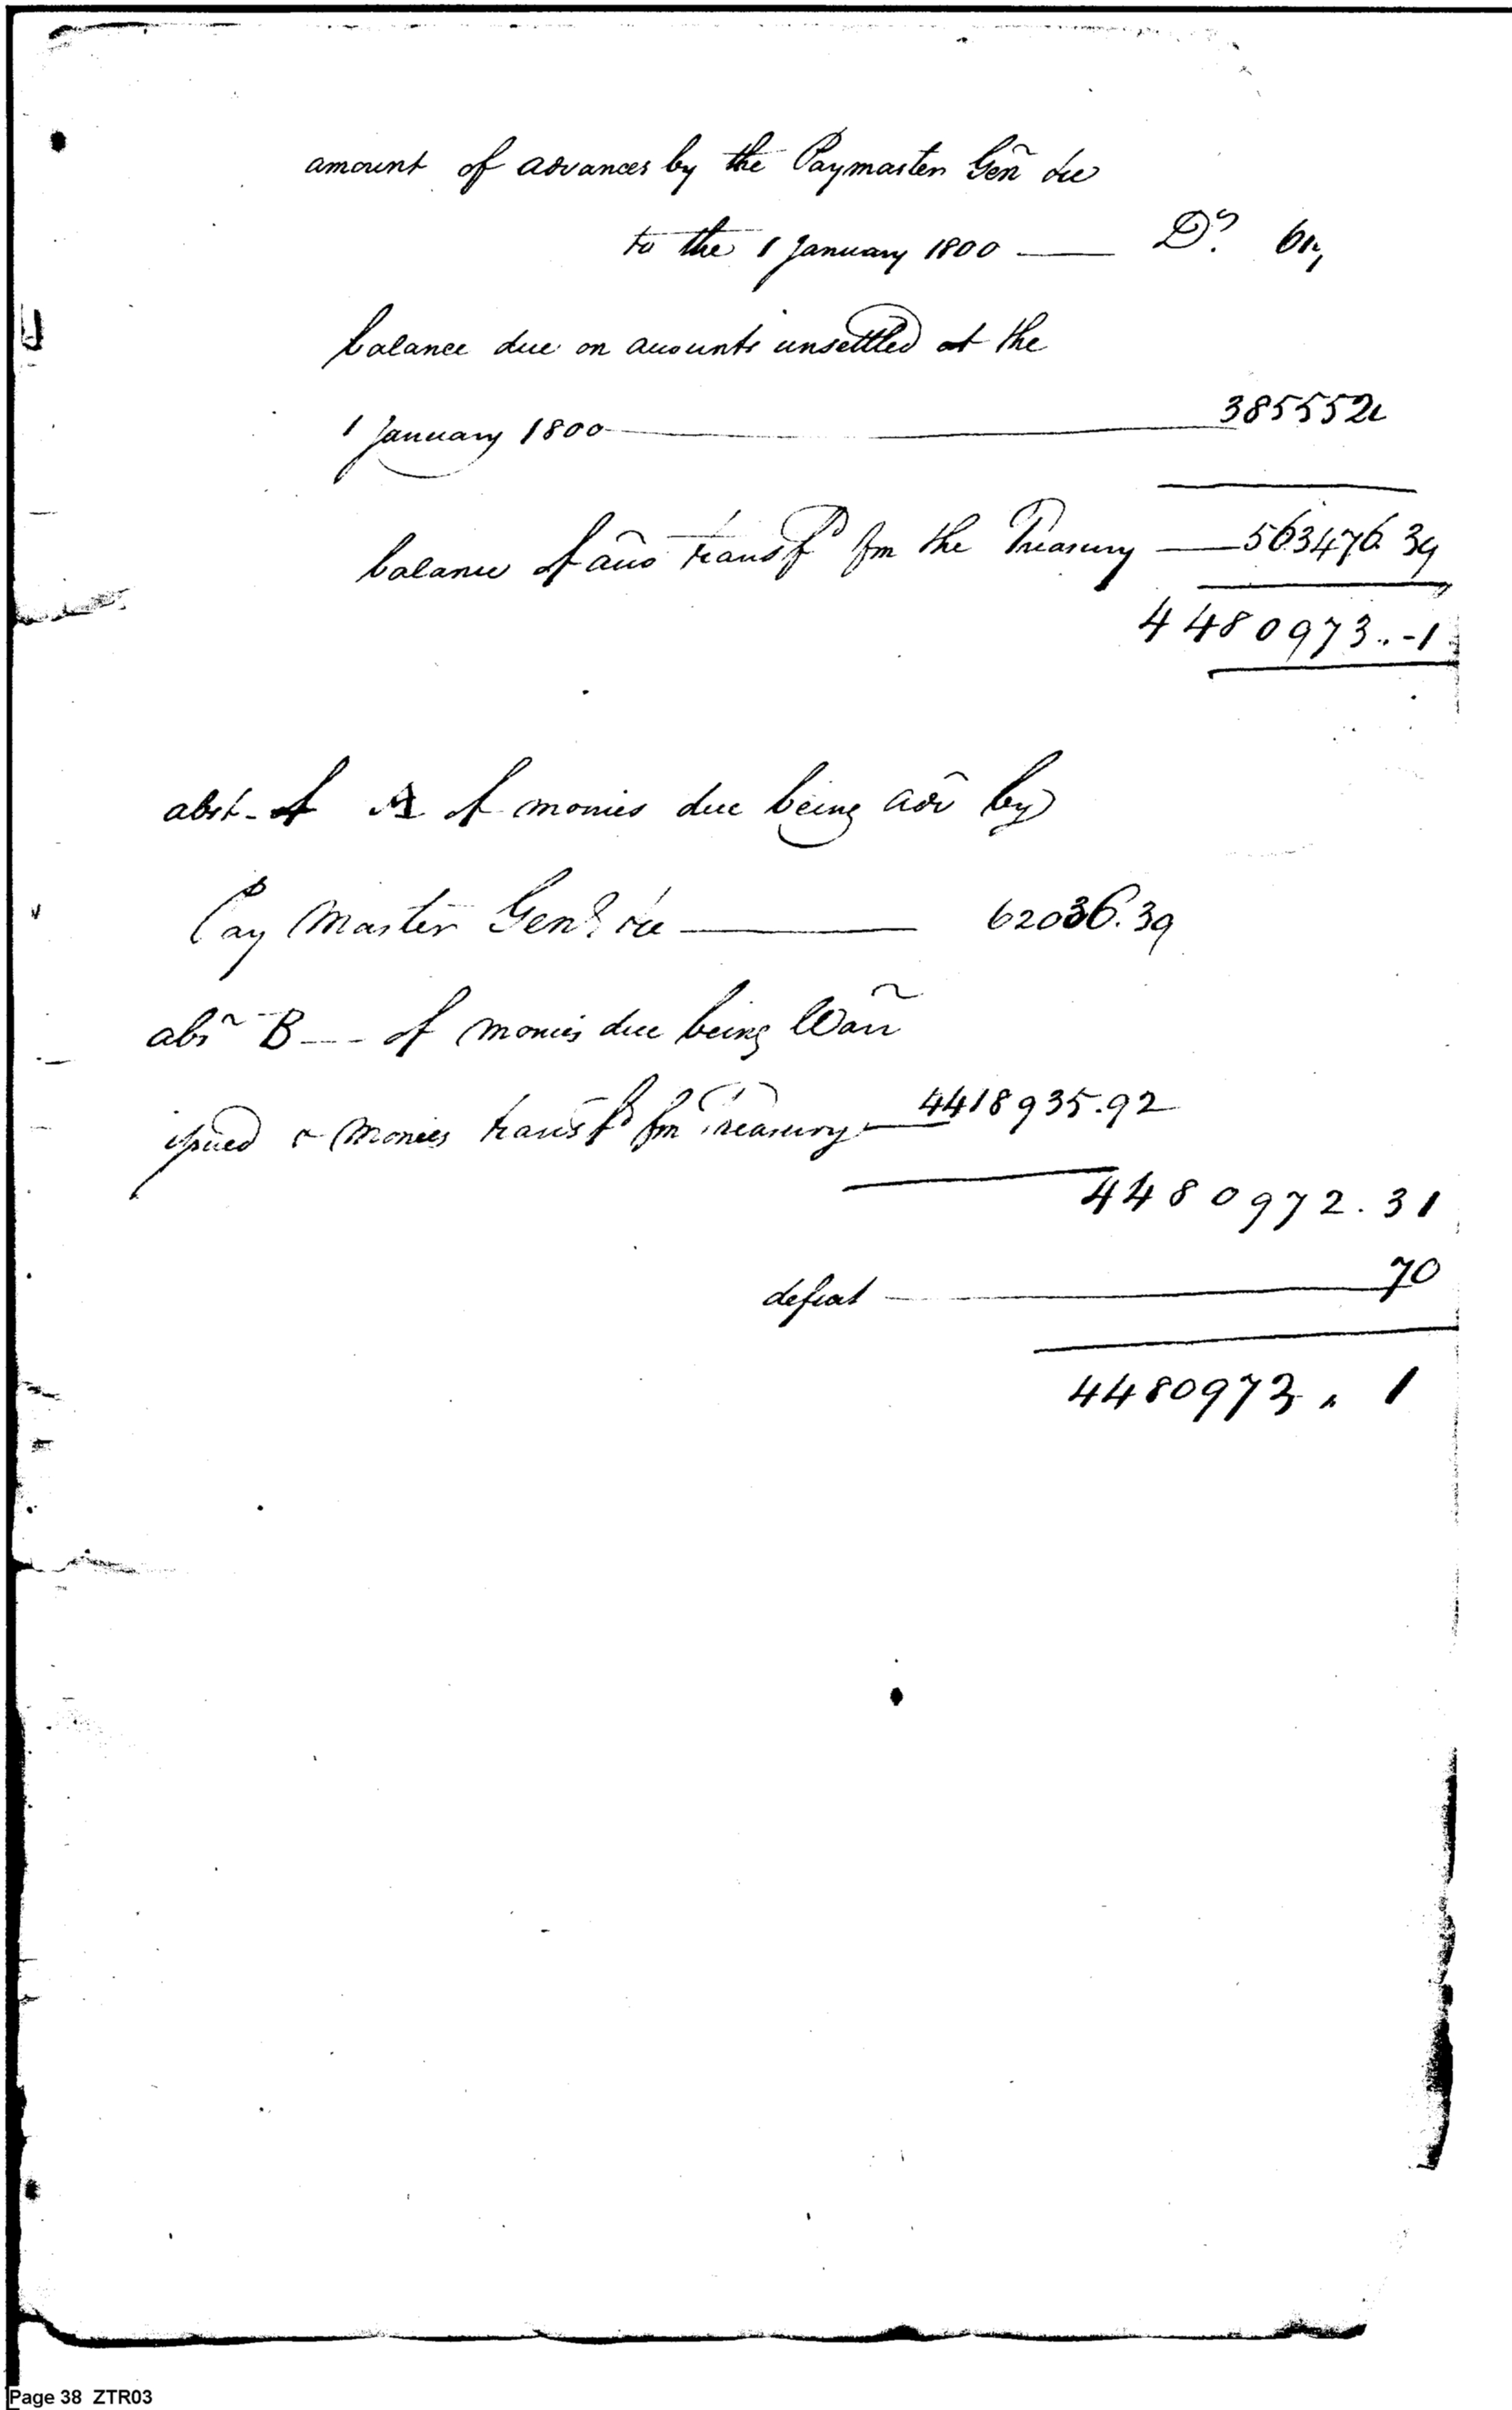 amount of advances by the Paymaster Gen̄ &c
to the 1 January 1800 — Drs.
balance due on accounts unsettled at the
1 January 1800 — 385552
balance of acc̄o transfd fm the Treasury — 563476.39
4480973..-1
abst- of A of monies due being adv̄ by
Pay Master Genl &c — 62036.39
abs̃ B--- of monies due being Warr̃
issued & monies transfd fm Treasury — 4418935.92
4480972.31
deficit — 70
4480973. 1
Page 38 ZTR03